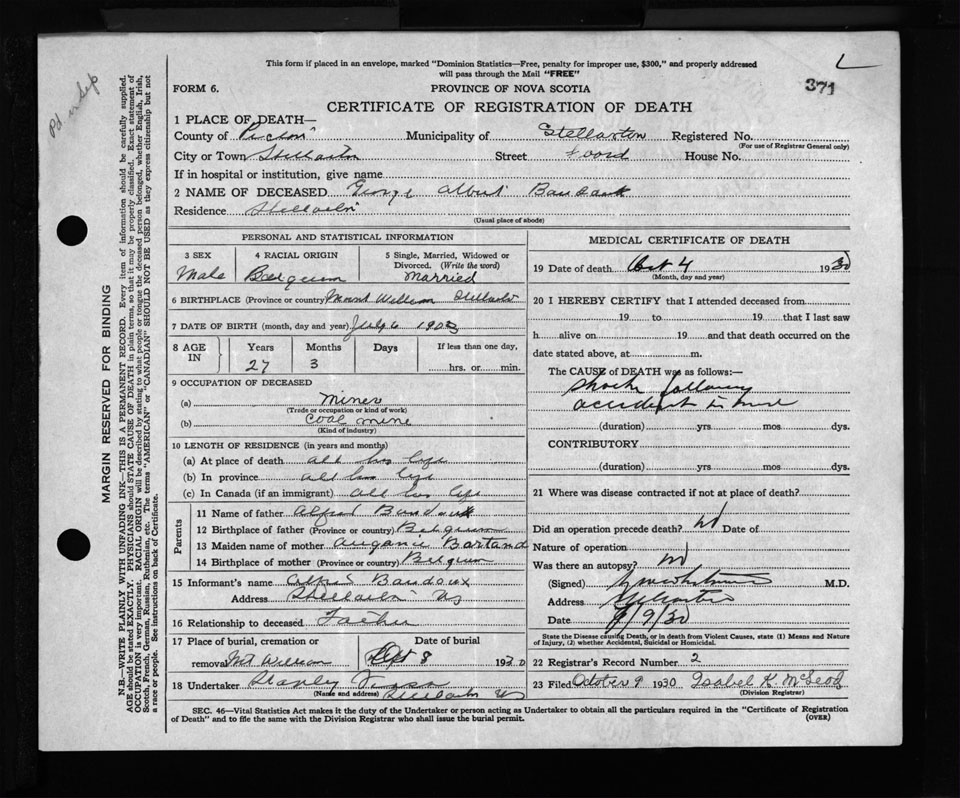 This form if placed in an envelope, marked "Dominion Statistics—Free, penalty for improper use, $300," and properly addressed
will pass through the Mail "FREE"
371
FORM 6.
PROVINCE OF NOVA SCOTIA
CERTIFICATE OF REGISTRATION OF DEATH
1 PLACE OF DEATH—
County of Pictou Municipality of Stellarton Registered No.
(For use of Registrar General only)
City or Town Stellarton Street Foord House No.
If in hospital or institution, give name
2 NAME OF DECEASED George Albert
Residence Stellarton
(Usual place of abode)
MARGIN RESERVED FOR BINDING
N.B.—WRITE PLAINLY WITH UNFADING INK—THIS IS A PERMANENT RECORD. Every item of information should be carefully supplied.
AGE should be stated EXACTLY. PHYSICIANS should STATE CAUSE OF DEATH in plain terms, so that it may be properly classified. Exact statement of
OCCUPATION is very important. RACIAL ORIGIN will be described by stating to what people or tongue the deceased person belonged, whether English, Irish,
Scotch, French, German, Russian, Ruthenian, etc. The terms "AMERICAN" or "CANADIAN" SHOULD NOT BE USED as they express citizenship but not
a race or people. See instructions on back of Certificate.
PERSONAL AND STATISTICAL INFORMATION
3 SEX
Male
4 RACIAL ORIGIN
Belgium
5 Single, Married, Widowed or
Divorced. (Write the word)
Married
6 BIRTHPLACE (Province or country) Mount William Stellarton
7 DATE OF BIRTH (month, day and year) July 6 1903
8 AGE
IN
Years
27
Months
3
Days
If less than one day,
hrs. or min.
9 OCCUPATION OF DECEASED
(a) Miner
(Trade or occupation or kind of work)
(b) Coal mine
(Kind of industry)
10 LENGTH OF RESIDENCE (in years and months)
(a) At place of death all his life
(b) In province all his life
(c) In Canada (if an immigrant) all his life
Parents
11 Name of father Alfred
12 Birthplace of father (Province or country) Belgium
13 Maiden name of mother Bartand
14 Birthplace of mother (Province or country) Belgium
15 Informant's name Alfred Baudoux
Address Stellarton NS
16 Relationship to deceased Father
17 Place of burial, cremation or
removal Mt William
Date of burial
8 1930
18 Undertaker Stanley
(Name and address) Stellarton NS
MEDICAL CERTIFICATE OF DEATH
19 Date of death Oct 4 1930
(Month, day and year)
20 I HEREBY CERTIFY that I attended deceased from
19 to 19 that I last saw
h alive on 19 and that death occurred on the
date stated above, at m.
The CAUSE of DEATH was as follows:—
Shock following
accident in mine
(duration) yrs mos dys.
CONTRIBUTORY
(duration) yrs mos dys.
21 Where was disease contracted if not at place of death?
Did an operation precede death? no Date of
Nature of operation
Was there an autopsy? no
(Signed) M.D.
Address
Date 9/30
State the Disease causing Death, or in death from Violent Causes, state (1) Means and Nature
of Injury, (2) whether Accidental, Suicidal or Homicidal.
22 Registrar's Record Number 2
23 Filed October 9 1930 Isabel K. McLeod
(Division Registrar)
SEC. 46—Vital Statistics Act makes it the duty of the Undertaker or person acting as Undertaker to obtain all the particulars required in the "Certificate of Registration
of Death" and to file the same with the Division Registrar who shall issue the burial permit.
(OVER)